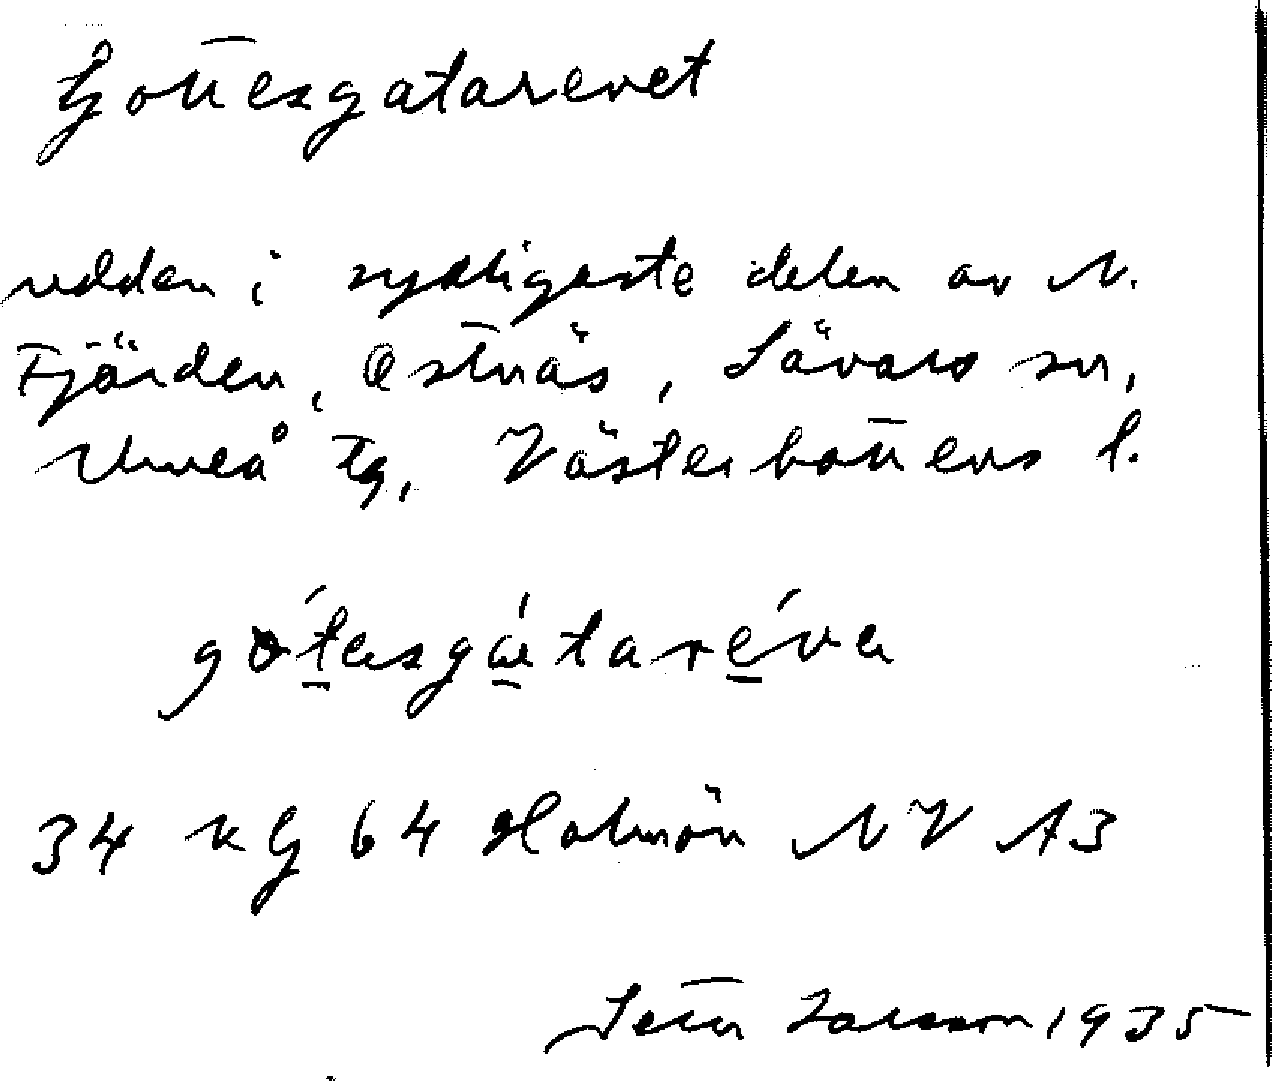 Gottesgatarevet
udden i sydligaste delen av N.
Fjärden, Ostnäs, Sävars sn,
Umeå tg, Västerbottens l.
gótasgátaréva
34 kG 64 Holmön NV A3
Setter Larsson 1935